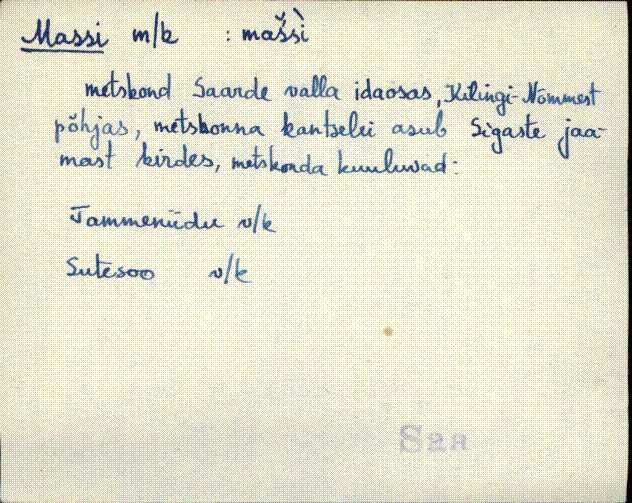 Massi m/k : maš̀šì
metskond Saarde valla idaosas, Kilingi-Nõmmest
põhjas, metskonna kantselei asub Sigaste jaa-
mast kirdes, metskonda kuuluvad:
Tammeniidu v/k
Sutesoo v/k
Saa